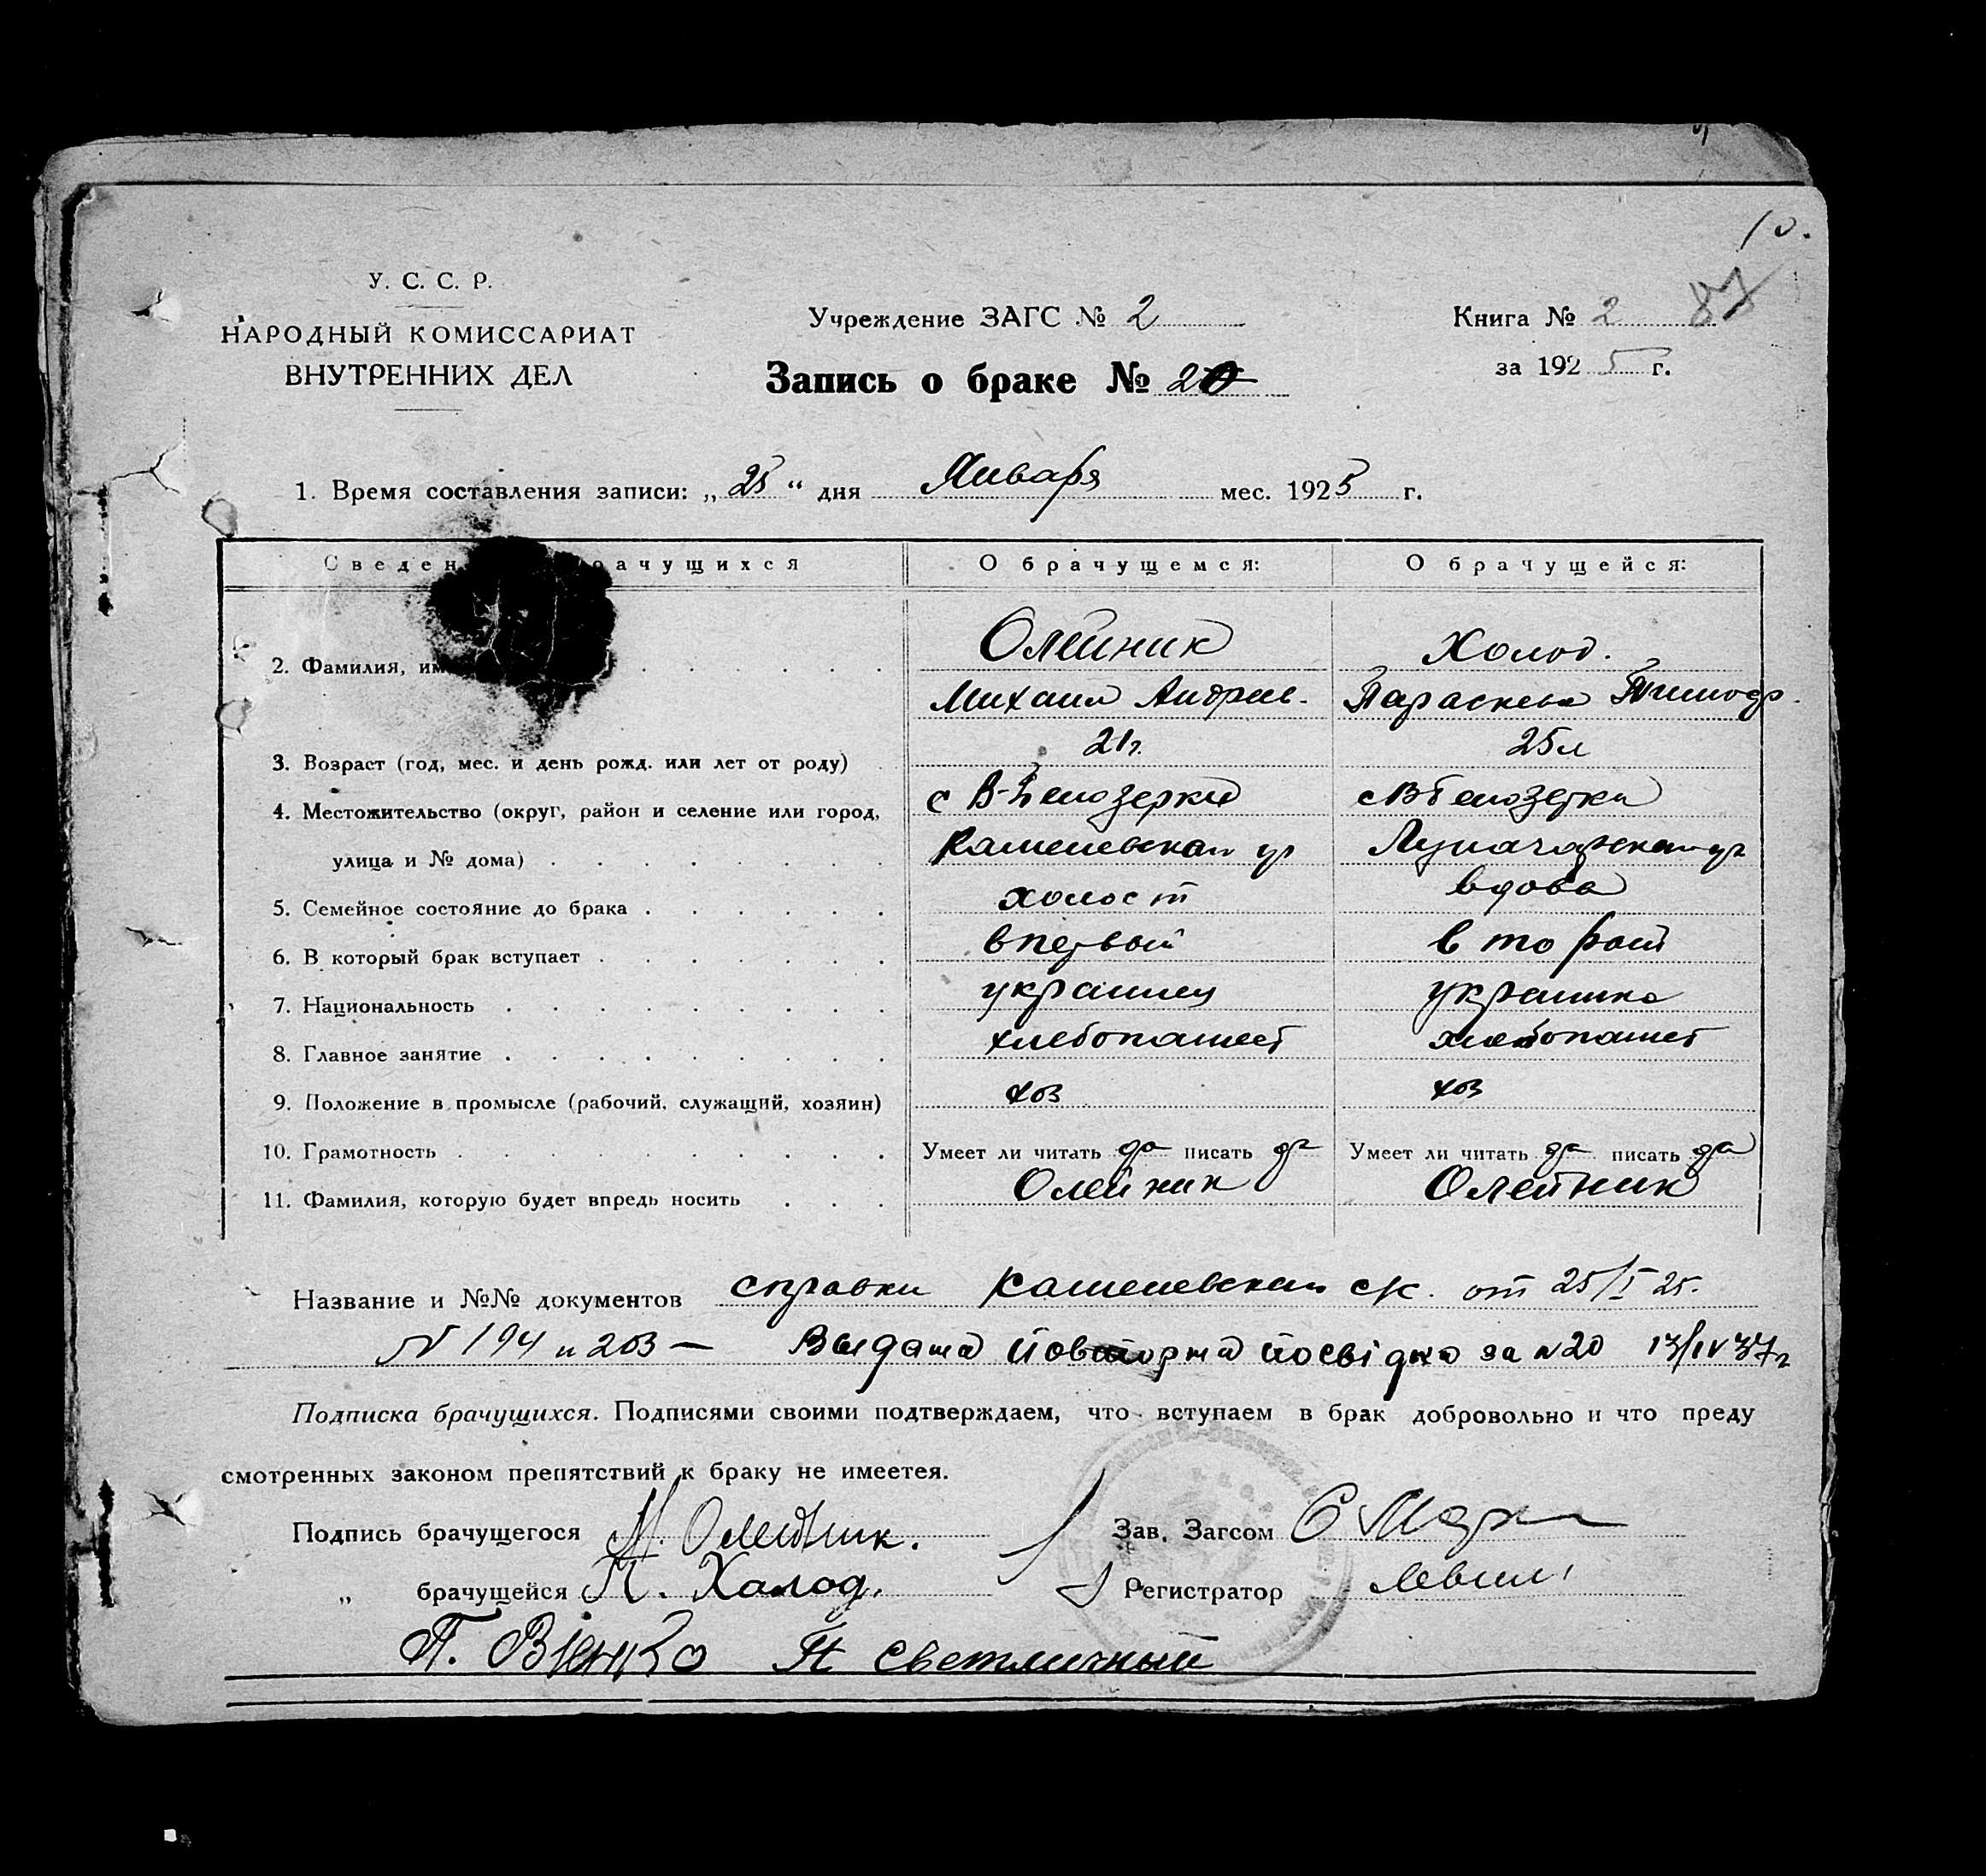 10.
87
У. С. С. Р.
НАРОДНЫЙ КОМИССАРИАТ
ВНУТРЕННИХ ДЕЛ
Учреждение ЗАГС № 2
Книга № 2
Запись о браке № 20
за 1925 г.
1. Время составления записи: „25“ дня Января мес. 1925 г.
Сведен рачущихся О брачущемся: О брачущейся:
2. Фамилия, им Олейник Холод.
Михаил Андреев. Параскева
3. Возраст (год, мес. и день рожд. или лет от роду) 21г. 25л
4. Местожительство (округ, район и селение или город, с В-Белозерка с В Белозерка
улица и № дома) ул Луначарская ул
5. Семейное состояние до брака холост вдова
6. В который брак вступает впервый второй
7. Национальность украинец украинка
8. Главное занятие хлебопашест хлебопашест
9. Положение в промысле (рабочий, служащий, хозяин) хоз хоз
10. Грамотность Умеет ли читать да писать да Умеет ли читать да писать да
11. Фамилия, которую будет впредь носить Олейник Олейник
Название и №№ документов справки с/к. от 25/I 25.
N 194 и 203 — Выдана повторна посвідка за N 20 13/IV 37г
Подписка брачущихся. Подписями своими подтверждаем, что вступаем в брак добровольно и что преду
смотренных законом препятствий к браку не имеетея.
Подпись брачущегося М. Олейник. Зав. Загсом
„ брачущейся П. Холод. Регистратор
П. Светличный